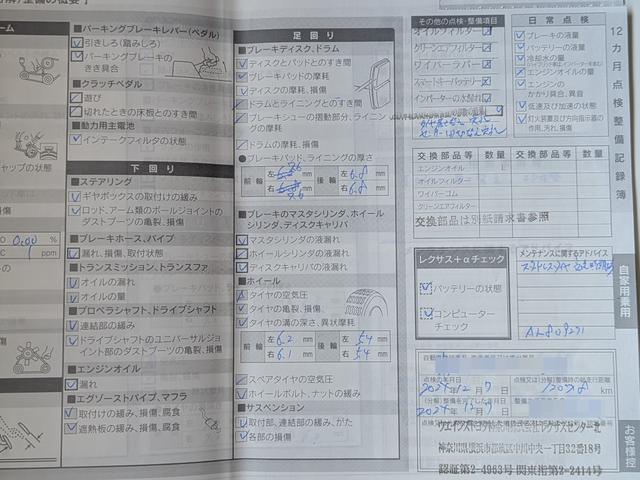 ■パーキングブレーキレバー(ペダル)
引きしろ(踏みしろ)
パーキングブレーキの
きき具合
■クラッチペダル
遊び
切れたときの床板とのすき間
■動力用主電池
インテークフィルタの状態
下回り
■ステアリング
ギヤボックスの取付けの緩み
ロッド、アーム類のボールジョイントの
ダストブーツの亀裂、損傷
■ブレーキホース、パイプ
漏れ、損傷、取付状態
■トランスミッション、トランスファ
オイルの漏れ
オイルの量
■プロペラシャフト、ドライブシャフト
連結部の緩み
ドライブシャフトのユニバーサルジョ
イント部のダストブーツの亀裂、損傷
■エンジンオイル
漏れ
■エグゾーストパイプ、マフラ
取付けの緩み、損傷、腐食
遮熱板の緩み、損傷、腐食
足回り
■ブレーキディスク、ドラム
ディスクとパッドとのすき間
ブレーキパッドの摩耗
ディスクの摩耗、損傷
ドラムとライニングとのすき間
ブレーキシューの摺動部分、ライニン
グの摩耗
ドラムの摩耗、損傷
●ブレーキパッド、ライニングの厚さ
前輪 左 mm 後輪 左 6.8 mm
右 mm 右 6.8 mm
■ブレーキのマスタシリンダ、ホイール
シリンダ、ディスクキャリパ
マスタシリンダの液漏れ
ホイールシリンダの液漏れ
ディスクキャリパの液漏れ
■ホイール
タイヤの空気圧
タイヤの亀裂、損傷
タイヤの溝の深さ、異状摩耗
前輪 左 6.2 mm 後輪 左 5.4 mm
右 6.1 mm 右 5.4 mm
スペアタイヤの空気圧
ホイールボルト、ナットの緩み
■サスペンション
取付部、連結部の緩み、がた
各部の損傷
その他の点検・整備項目
オイルフィルター
クリーンエアフィルター
ワイパーラバー
スマートキーバッテリー
インバーターの水漏れ
日常点検
ブレーキの液量
バッテリーの液量
冷却水の量
エンジンオイルの量
エンジンの
かかり具合、異音
低速及び加速の状態
灯火装置及び方向指示器の
作用、汚れ、損傷
12カ月点検整備記録簿
交換部品等 数量 交換部品等 数量
エンジンオイル
オイルフィルター
ワイパーゴム
クリーンエアフィルター
交換部品は別紙請求書参照
レクサス+αチェック
バッテリーの状態
コンピューター
チェック
メンテナンスに関するアドバイス
自家用乗用
点検の年月日
2024年 12月 7日
2024年 12月 7日
神奈川県横浜市都筑区中川中央一丁目32番18号
認証第2-4963号 関東指第2-2414号
お客様控